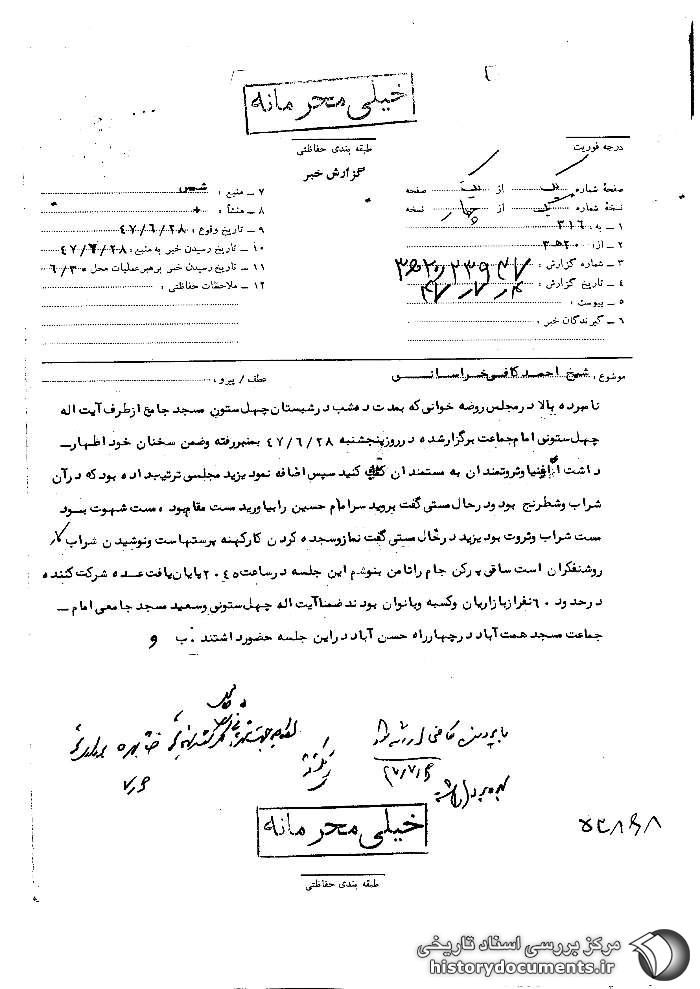 خیلی محرمانه
طبقه بندی حفاظتی
درجه فوریت
گزارش خبر
صفحه شماره یک از یک صفحه
نسخه شماره یک از چهار نسخه
۱ ـ به : ۳۱۶
۲ ـ از : ۲۰ ه ۳
۳ ـ شماره گزارش :
۴ ـ تاریخ گزارش :
۵ ـ پیوست :
۶ ـ گیرندگان خبر :
۷ ـ منبع : شمس
۸ ـ منشأ : +
۹ ـ تاریخ وقوع : ۴۷/۶/۲۸
۱۰ ـ تاریخ رسیدن خبر به منبع : ۴۷/۶/۲۸
۱۱ ـ تاریخ رسیدن خبر برهبر عملیات محل : ۶/۳۰
۱۲ ـ ملاحظات حفاظتی :
موضوع : شیخ احمد کافی خراسانی
عطف / پیرو :
نامبرده بالا در مجلس روضه خوانی که بمدت ده شب در شبستان چهل ستون مسجد جامع از طرف آیت اله
چهل ستونی امام جماعت برگزار شده در روز پنجشنبه ۴۷/۶/۲۸ بمنبر رفته وضمن سخنان خود اظهار ـ
داشت اغنیا وثروتمندان به مستمندان کمک کنید سپس اضافه نمود یزید مجلسی ترتیب داده بود که در آن
شراب وشطرنج بود ودر حال مستی گفت بروید سر امام حسین را بیاورید مست مقام بود ، مست شهوت بسود
مست شراب وثروت بود یزید در حال مستی گفت نماز وسجده کردن کار کهنه پرستهاست ونوشیدن شراب کار
روشنفکران است ساقی پرکن جام را تا من بنوشم این جلسه در ساعت ۲۰۴۵ پایان یافت عده شرکت کننده
در حدود ۶۰ نفر از بازاریان وکسبه وبانوان بودند ضمنا آیت اله چهل ستونی وسعید مسجد جامعی امام ـ
جماعت مسجد همت آباد در چهارراه حسن آباد در این جلسه حضور داشتند . ب و
خیلی محرمانه
طبقه بندی حفاظتی
مرکز بررسی اسناد تاریخی
historydocuments.ir